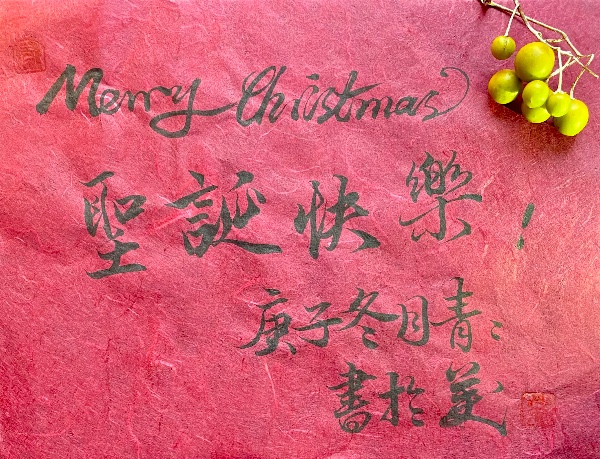 Merry Christmas
聖誕快樂!
庚子冬月青々
書於美